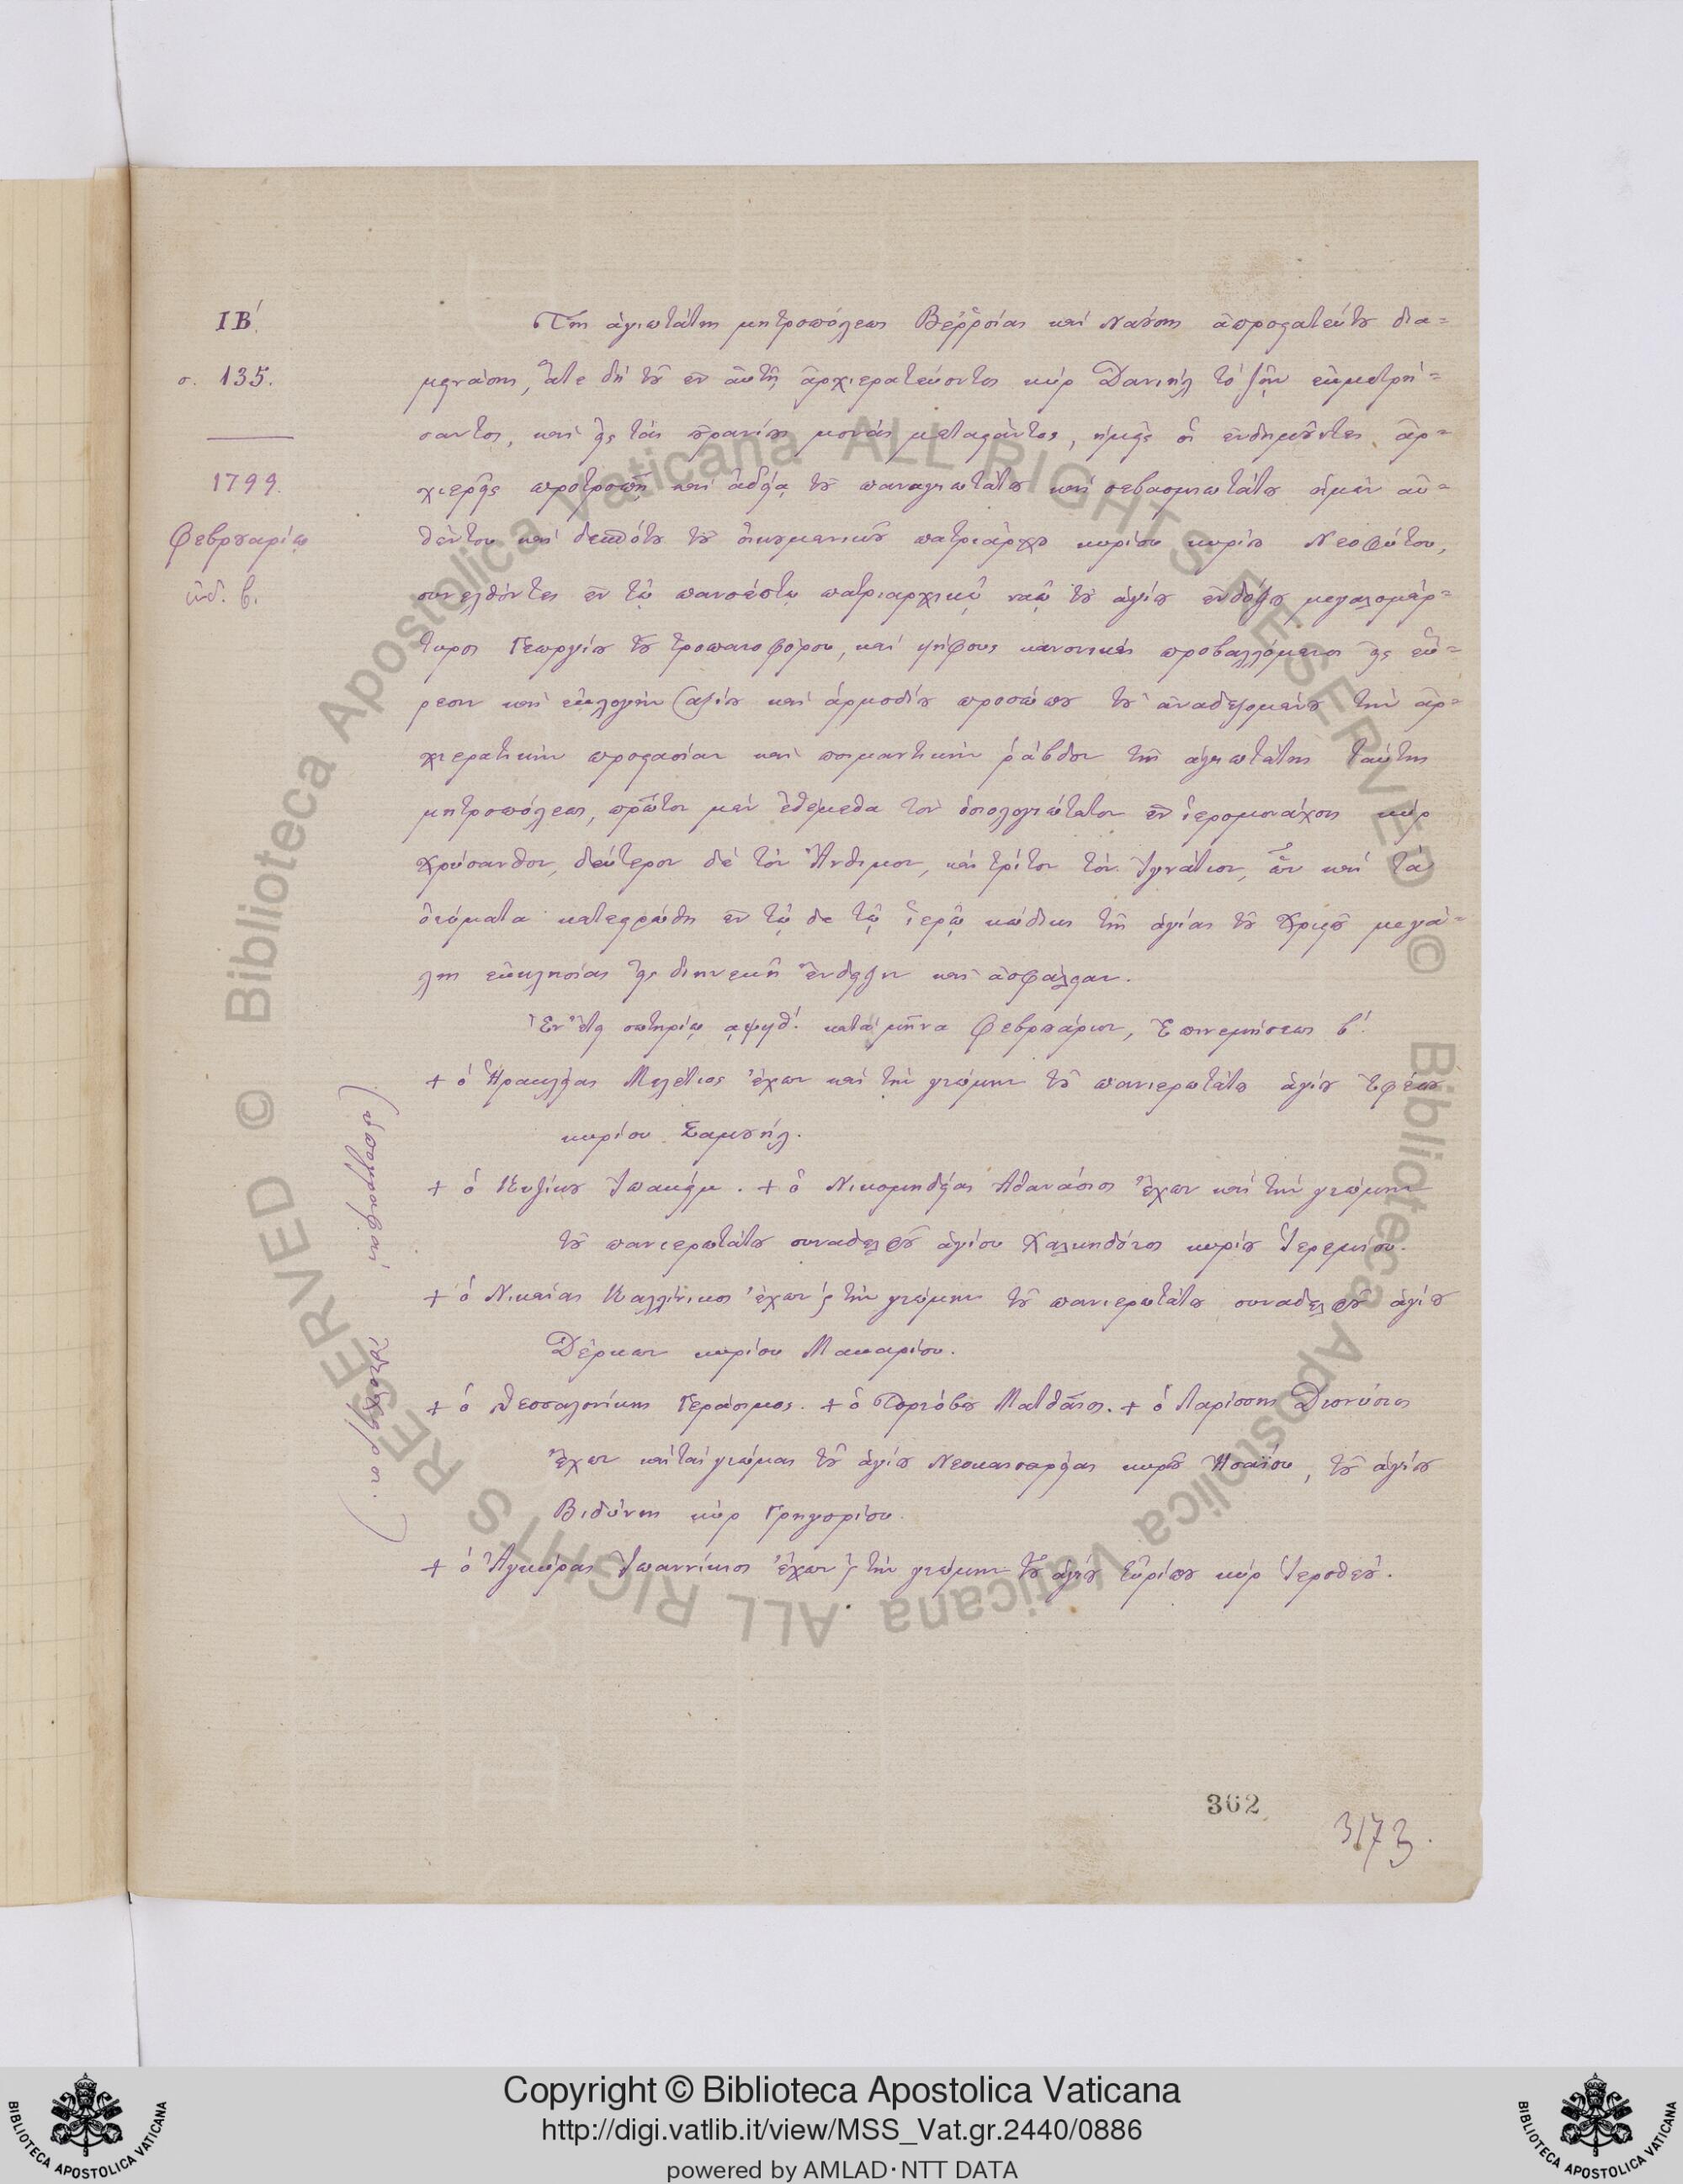 ΙΒ΄.
σ. 135.
1799.
Φεβρουαρίῳ
ἰνδ. β.
Τῆς ἁγιωτάτης μητροπόλεως Βεῤῥοίας καὶ Ναούσης ἀπροστατεύτου δια=
μεινάσης, ἅτε δὴ τοῦ ἐν αὐτῇ ἀρχιερατεύοντος κὺρ Δανιὴλ τὸ ζῆν ἐκμετρή=
σαντος, καὶ εἰς τὰς οὐρανίους μονὰς μεταστάντος, ἡμεῖς οἱ ἐνδημοῦντες ἀρ=
χιερεῖς προτροπῇ καὶ ἀδείᾳ τοῦ παναγιωτάτου καὶ σεβασμιωτάτου ἡμῶν αὐ=
θέντου καὶ δεσπότου τοῦ οἰκουμενικοῦ πατριάρχου κυρίου κυρίου Νεοφύτου,
συνελθόντες ἐν τῷ πανσέπτῳ πατριαρχικῷ ναῷ τοῦ ἁγίου ἐνδόξου μεγαλομάρ=
τυρος Γεωργίου τοῦ τροπαιοφόρου, καὶ ψήφους κανονικὰς προβαλλόμενοι εἰς εὕ=
ρεσιν καὶ ἐκλογὴν ἀξίου καὶ ἁρμοδίου προσώπου τοῦ ἀναδεξομένου τὴν ἀρ=
χιερατικὴν προστασίαν καὶ ποιμαντικὴν ῥάβδον τῆς ἁγιωτάτης ταύτης
μητροπόλεως, πρῶτον μὲν ἐθέμεθα τὸν ὁσιολογιώτατον ἐν ἱερομονάχοις κὺρ
Χρύσανθον, δεύτερον δὲ τὸν Ἄνθιμον, καὶ τρίτον τὸν Ἰγνάτιον, ὧν καὶ τὰ
ὀνόματα κατεστρώθη ἐν τῷδε τῷ ἱερῷ κώδικι τῆς ἁγίας τοῦ Χριστοῦ μεγά=
λης ἐκκλησίας εἰς διηνεκῆ ἔνδειξιν καὶ ἀσφάλειαν.
Ἐν ἔτει σωτηρίῳ ͵αψϟθ΄. κατὰ μῆνα Φεβρουάριον, Ἐπινεμήσεως β΄.
+ ὁ Ἡρακλείας Μελέτιος ἔχων καὶ τὴν γνώμην τοῦ πανιερωτάτου ἁγίου Ἐφέσου
κυρίου Σαμουήλ.
+ ὁ Κυζίκου Ἰωακείμ. + ὁ Νικομηδείας Ἀθανάσιος ἔχων καὶ τὴν γνώμην
τοῦ πανιερωτάτου συναδελφοῦ ἁγίου Χαλκηδόνος κυρίου Ἱερεμίου.
+ ὁ Νικαίας Καλλίνικος ἔχων ϗ τὴν γνώμην τοῦ πανιερωτάτου συναδελφοῦ ἁγίου
Δέρκων κυρίου Μακαρίου.
+ ὁ Θεσσαλονίκης Γεράσιμος. + ὁ Τορνόβου Ματθαῖος. + ὁ Λαρίσσης Διονύσιος
ἔχων καὶ τὰς γνώμας τοῦ ἁγίου Νεοκαισαρείας κυροῦ Ἡσαΐου, τοῦ ἁγίου
Βιδύνης κὺρ Γρηγορίου.
+ ὁ Ἀγκύρας Ἰωαννίκιος ἔχων ϗ τὴν γνώμην τοῦ ἁγίου Εὐρίπου κὺρ Ἱεροθέου.
362
3173.
Copyright © Biblioteca Apostolica Vaticana
http://digi.vatlib.it/view/MSS_Vat.gr.2440/0886
powered by AMLAD·NTT DATA
BIBLIOTECA APOSTOLICA VATICANA
BIBLIOTECA APOSTOLICA VATICANA
© Biblioteca Apostolica Vaticana ALL RIGHTS RESERVED © Biblioteca Apostolica Vaticana ALL RIGHTS RESERVED